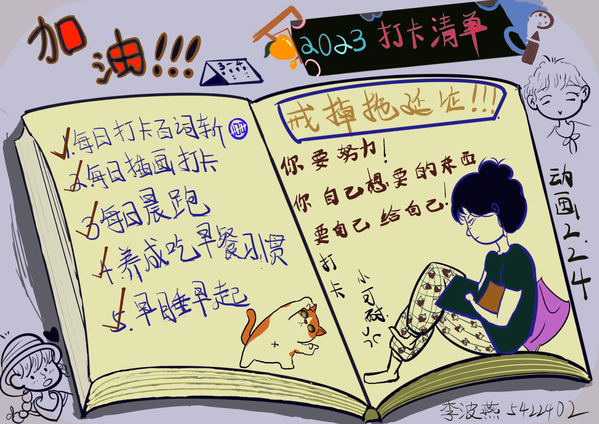 加油!!!
2023 打卡清单
1.每日打卡百词斩 100
2.每日插画打卡
3.每日晨跑
4.养成吃早餐习惯
5.早睡早起
戒掉拖延症!!!
你要努力!
你自己想要的东西
要自己给自己!
打卡
动画2.24
李波燕 5422402